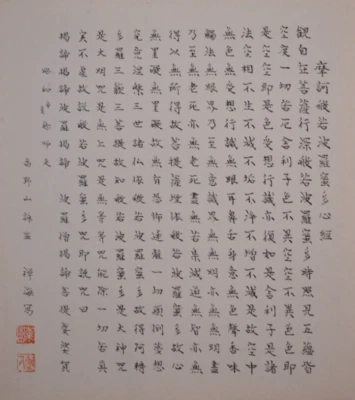 摩訶般若波羅蜜多心經
觀自在菩薩行深般若波羅蜜多時照見五蘊皆
空度一切苦厄舍利子色不異空空不異色色即
是空空即是色受想行識亦復如是舍利子是諸
法空相不生不滅不垢不淨不增不減是故空中
無色無受想行識無眼耳鼻舌身意無色聲香味
觸法無眼界乃至無意識界無無明亦無無明盡
乃至無老死亦無老死盡無苦集滅道無智亦無
得以無所得故菩提薩埵依般若波羅蜜多故心
無罣礙無罣礙故無有恐怖遠離一切顛倒夢想
究竟涅槃三世諸佛依般若波羅蜜多故得阿耨
多羅三藐三菩提故知般若波羅蜜多是大神咒
是大明咒是無上咒是無等等咒能除一切苦真
實不虛故說般若波羅蜜多咒即說咒曰
揭諦揭諦 波羅揭諦 波羅僧揭諦 菩提娑婆賀
高野山